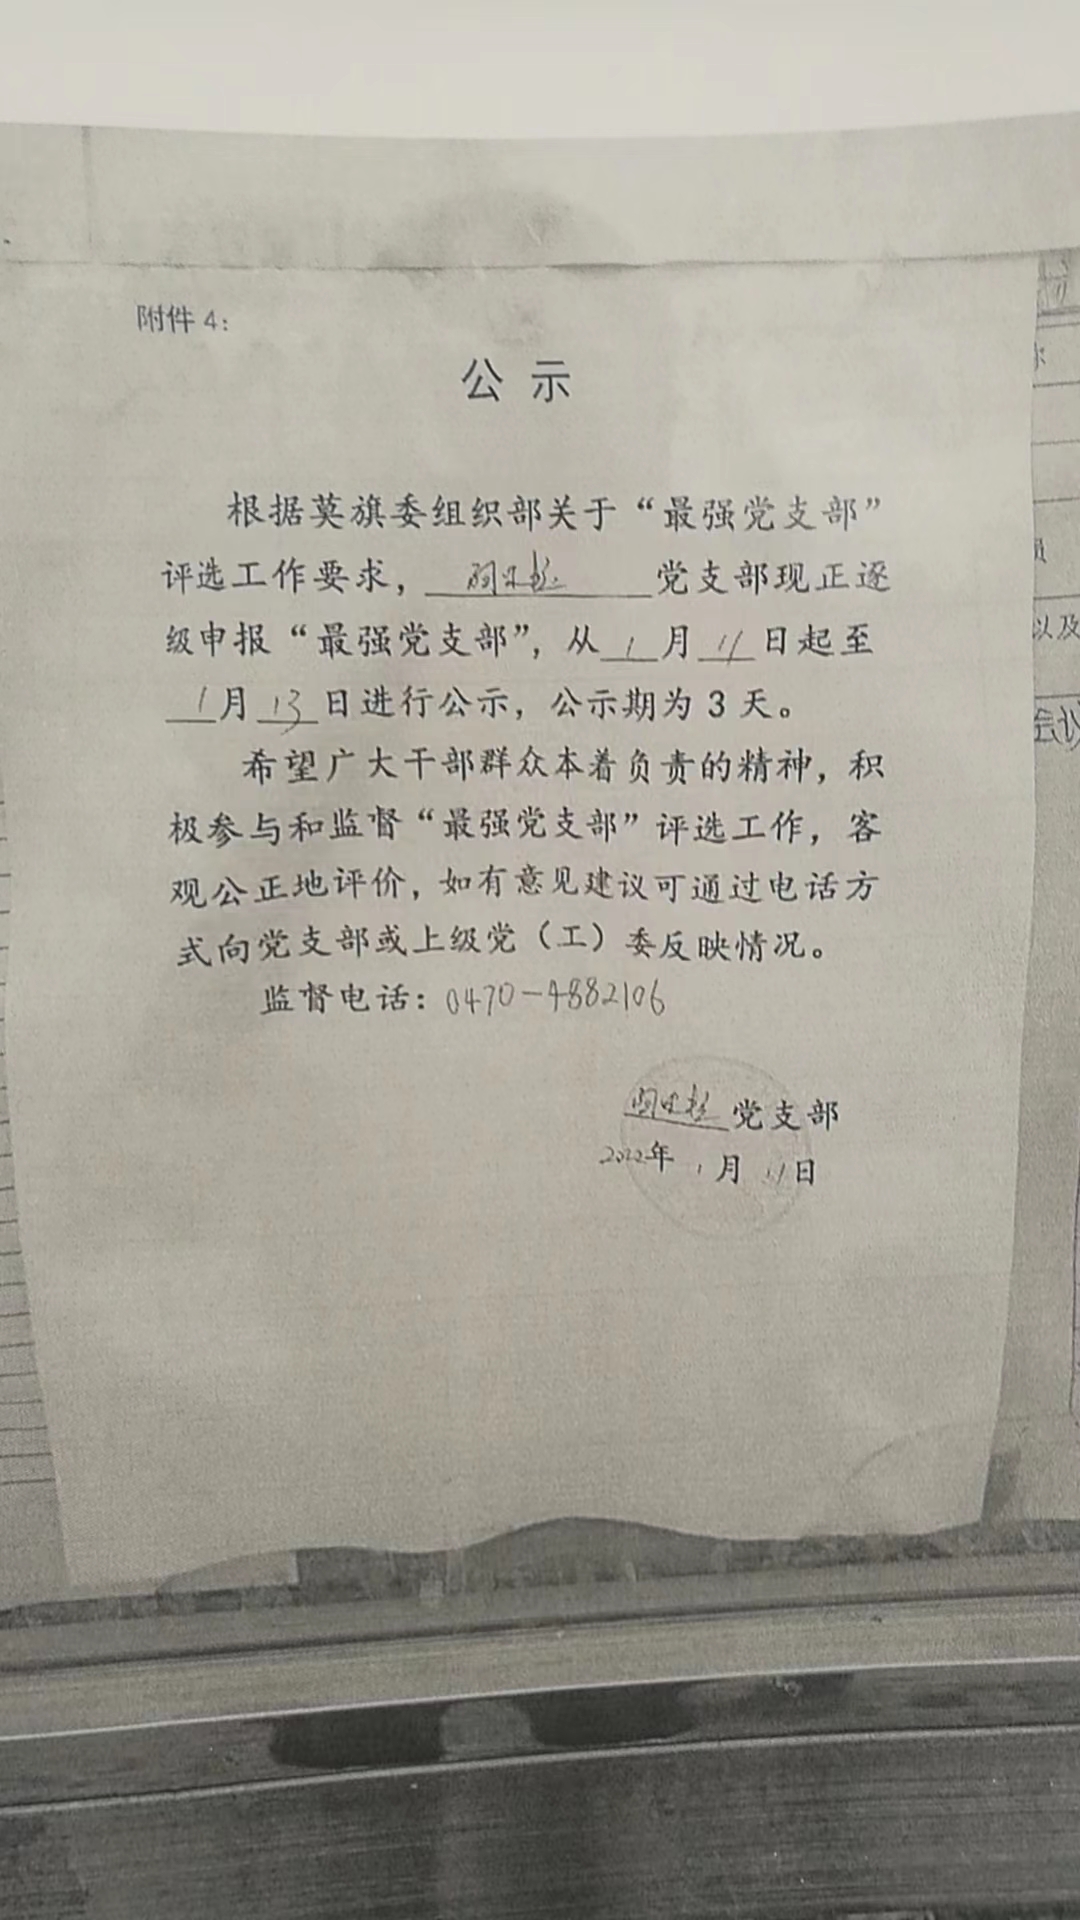 附件4:
公示
根据莫旗委组织部关于“最强党支部”
评选工作要求, 党支部现正逐
级申报“最强党支部”,从1月11日起至
1月13日进行公示,公示期为3天。
希望广大干部群众本着负责的精神,积
极参与和监督“最强党支部”评选工作,客
观公正地评价,如有意见建议可通过电话方
式向党支部或上级党(工)委反映情况。
监督电话:0470-4882106
党支部
2022年1月11日
以及
会议